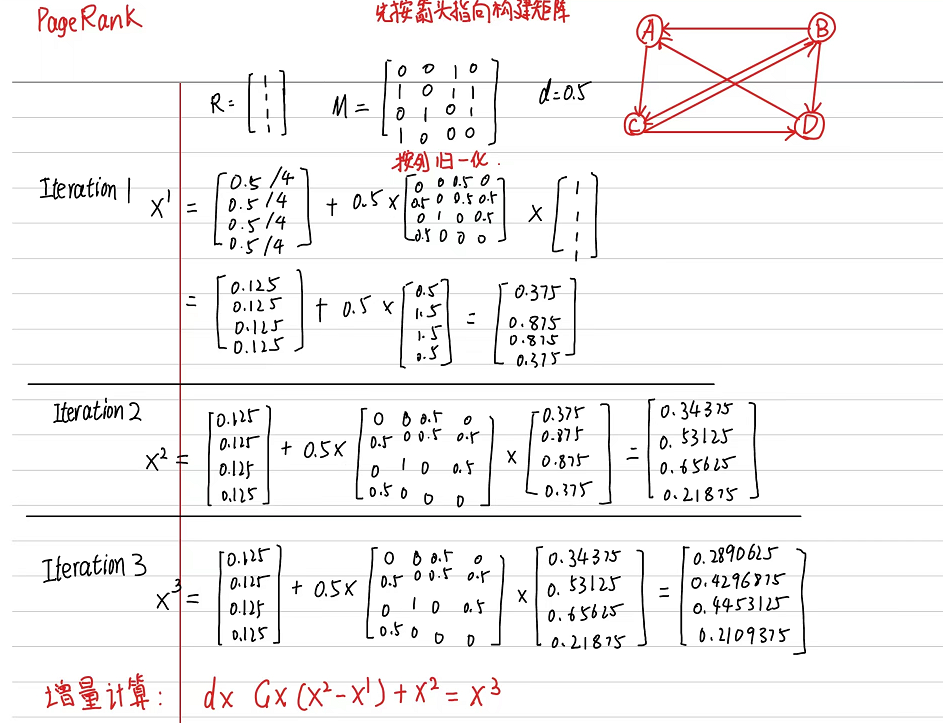 PageRank
先按箭头指向构建矩阵
A B
C D
R = [1 1 1 1] M = [0 0 1 0; 1 0 1 1; 0 1 0 1; 1 0 0 0] d=0.5
按列归一化.
Iteration 1 X¹ = [0.5/4 0.5/4 0.5/4 0.5/4] + 0.5 × [0 0 0.5 0; 0.5 0 0.5 0.5; 0 1 0 0.5; 0.5 0 0 0] × [1 1 1 1]
= [0.125 0.125 0.125 0.125] + 0.5 × [0.5 1.5 1.5 0.5] = [0.375 0.875 0.875 0.375]
Iteration 2
X² = [0.125 0.125 0.125 0.125] + 0.5× [0 0 0.5 0; 0.5 0 0.5 0.5; 0 1 0 0.5; 0.5 0 0 0] × [0.375 0.875 0.875 0.375] = [0.34375 0.53125 0.65625 0.21875]
Iteration 3
X³ = [0.125 0.125 0.125 0.125] + 0.5× [0 0 0.5 0; 0.5 0 0.5 0.5; 0 1 0 0.5; 0.5 0 0 0] × [0.34375 0.53125 0.65625 0.21875] = [0.2890625 0.4296875 0.4453125 0.2109375]
增量计算: d× G×(X²-X¹)+X²=X³